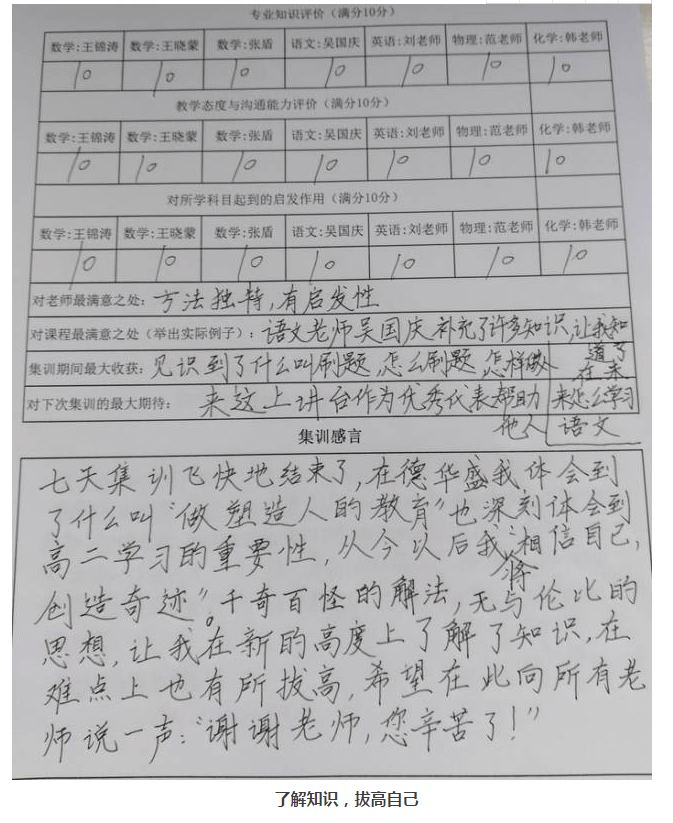 专业知识评价（满分10分）
数学:王锦涛 数学:王晓蒙 数学:张盾 语文:吴国庆 英语:刘老师 物理:范老师 化学:韩老师
10 10 10 10 10 10 10
教学态度与沟通能力评价（满分10分）
数学:王锦涛 数学:王晓蒙 数学:张盾 语文:吴国庆 英语:刘老师 物理:范老师 化学:韩老师
10 10 10 10 10 10 10
对所学科目起到的启发作用（满分10分）
数学:王锦涛 数学:王晓蒙 数学:张盾 语文:吴国庆 英语:刘老师 物理:范老师 化学:韩老师
10 10 10 10 10 10 10
对老师最满意之处：方法独特,有启发性
对课程最满意之处（举出实际例子）：语文老师吴国庆补充了许多知识,让我知
道了
在未
来怎么学习
语文
集训期间最大收获：见识到了什么叫刷题,怎么刷题 怎样做人
对下次集训的最大期待：来这上讲台作为优秀代表帮助
他人
集训感言
七天集训飞快地结束了,在德华盛我体会到
了什么叫“做塑造人的教育”也深刻体会到
高二学习的重要性,从今以后我将“相信自己,
创造奇迹”。千奇百怪的解法,无与伦比的
思想,让我在新的高度上了解了知识,在
难点上也有所拔高,希望在此向所有老
师说一声:“谢谢老师,您辛苦了!”
了解知识，拔高自己